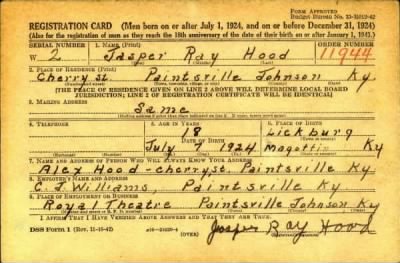 FORM APPROVED
REGISTRATION CARD (Men born on or after July 1, 1924, and on or before December 31, 1924)
(Also for the registration of men as they reach the 18th anniversary of the date of their birth on or after January 1, 1943.)
SERIAL NUMBER 1. NAME (Print) ORDER NUMBER
W 2 Jasper Ray Hood 11944
2. PLACE OF RESIDENCE (Print)
Cherry st. Paintsville Johnson Ky.
(THE PLACE OF RESIDENCE GIVEN ON LINE 2 ABOVE WILL DETERMINE LOCAL BOARD
JURISDICTION; LINE 2 OF REGISTRATION CERTIFICATE WILL BE IDENTICAL)
3. MAILING ADDRESS
Same
4. TELEPHONE 5. AGE IN YEARS 6. PLACE OF BIRTH
18 Lickburg
DATE OF BIRTH
July 7 1924 Magoffin Ky
7. NAME AND ADDRESS OF PERSON WHO WILL ALWAYS KNOW YOUR ADDRESS
Alex Hood - cherry st. Paintsville Ky
8. EMPLOYER'S NAME AND ADDRESS
C. J. Williams, Paintsville Ky
9. PLACE OF EMPLOYMENT OR BUSINESS
Royal Theatre Paintsville Johnson Ky
I AFFIRM THAT I HAVE VERIFIED ABOVE ANSWERS AND THAT THEY ARE TRUE.
DSS Form 1 (Rev. 11-16-42) (OVER) Jasper Ray Hood